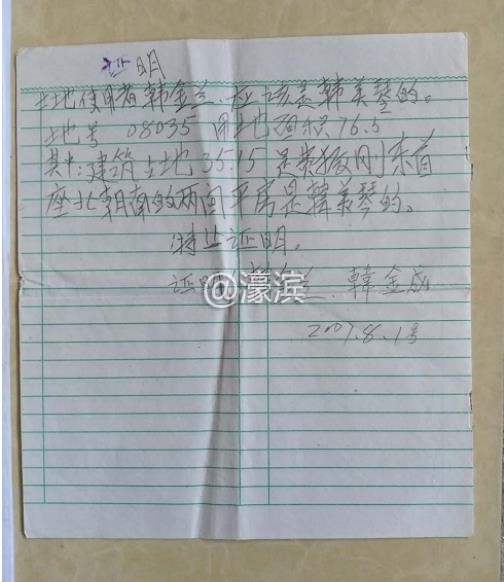 证明
土地使用者韩金兰,应该是韩美琴的。
地号 08035 用地面积76.5
其中:建筑占地35.15 是 刚 东首
座北朝南的两间平房是韩美琴的。
特此证明。
证明 兰、韩金成
2007.8.1号
@濠滨